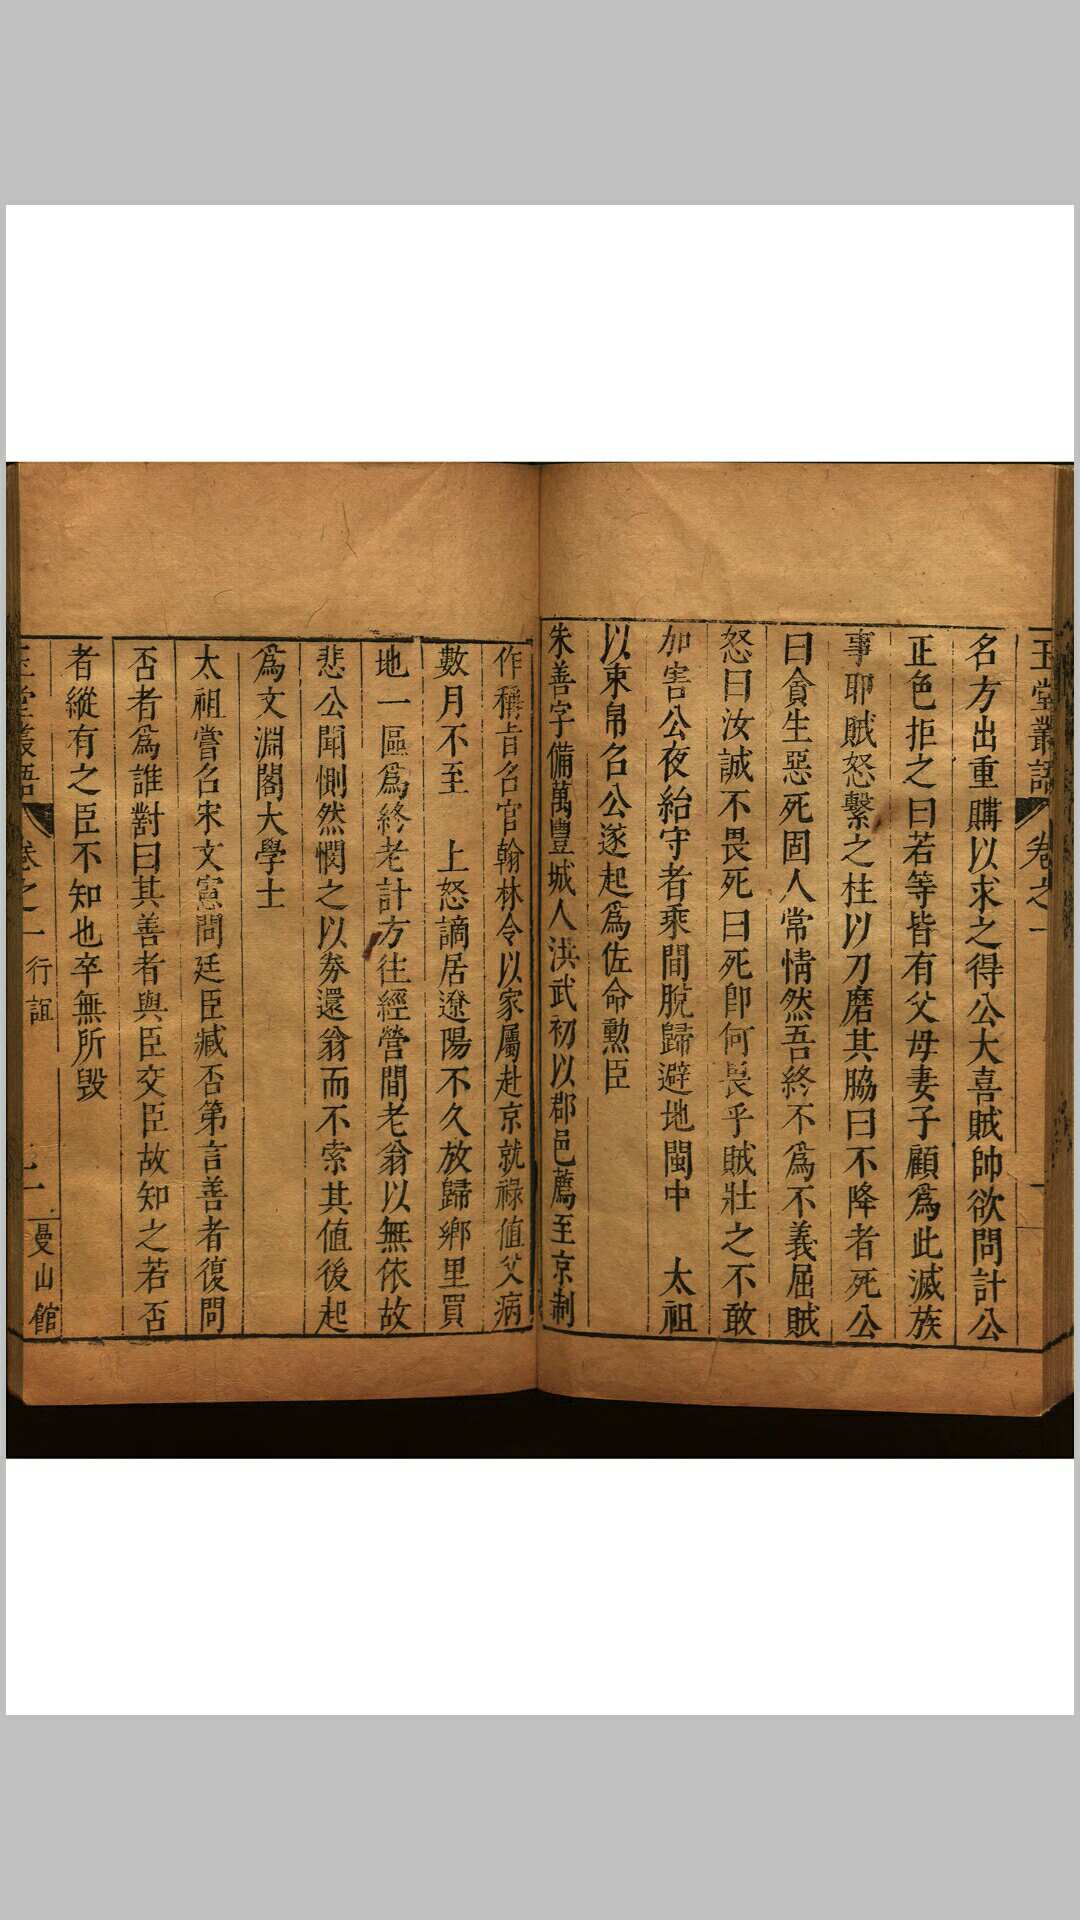 玉堂叢語 卷之一
名方出重購以求之得公大喜賊帥欲問計公
正色拒之曰若等皆有父母妻子顧爲此滅族
事耶賊怒繫之柱以刀磨其脇曰不降者死公
曰貪生惡死固人常情然吾終不爲不義屈賊
怒曰汝誠不畏死曰死卽何畏乎賊壯之不敢
加害公夜紿守者乘間脫歸避地閩中 太祖
以束帛召公遂起爲佐命勲臣
朱善字備萬豐城人洪武初以郡邑薦至京制
作稱旨召官翰林令以家屬赴京就祿值父病
數月不至 上怒謫居遼陽不久放歸鄉里買
地一區爲終老計方往經營間老翁以無依故
悲公聞惻然憫之以劵還翁而不索其値後起
爲文淵閣大學士
太祖嘗召宋文憲問廷臣臧否第言善者復問
否者爲誰對曰其善者與臣交臣故知之若否
者縱有之臣不知也卒無所毀
玉堂叢語 卷之一 行誼 曼山館